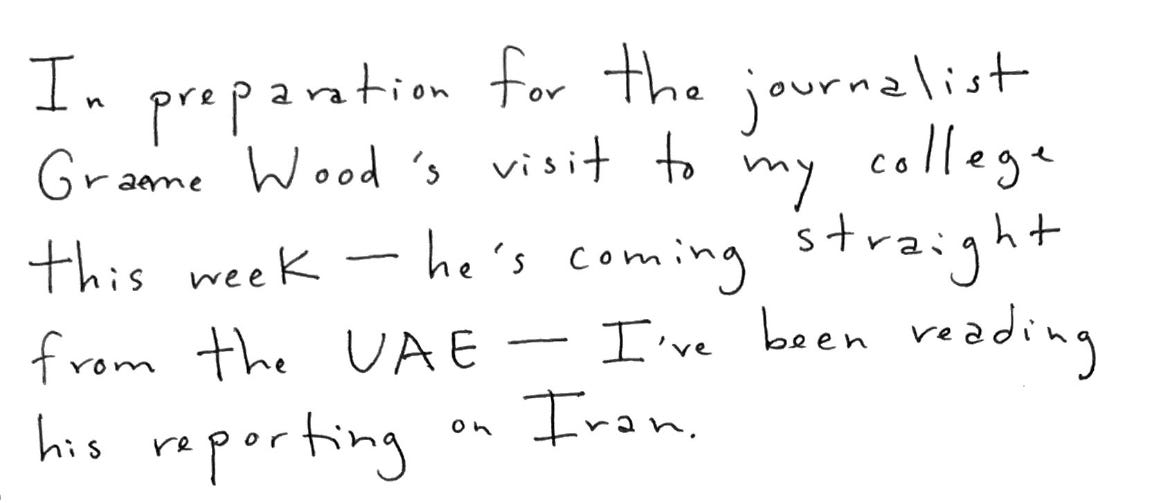 In preparation for the journalist
Graeme Wood's visit to my college
this week — he's coming straight
from the UAE — I've been reading
his reporting on Iran.